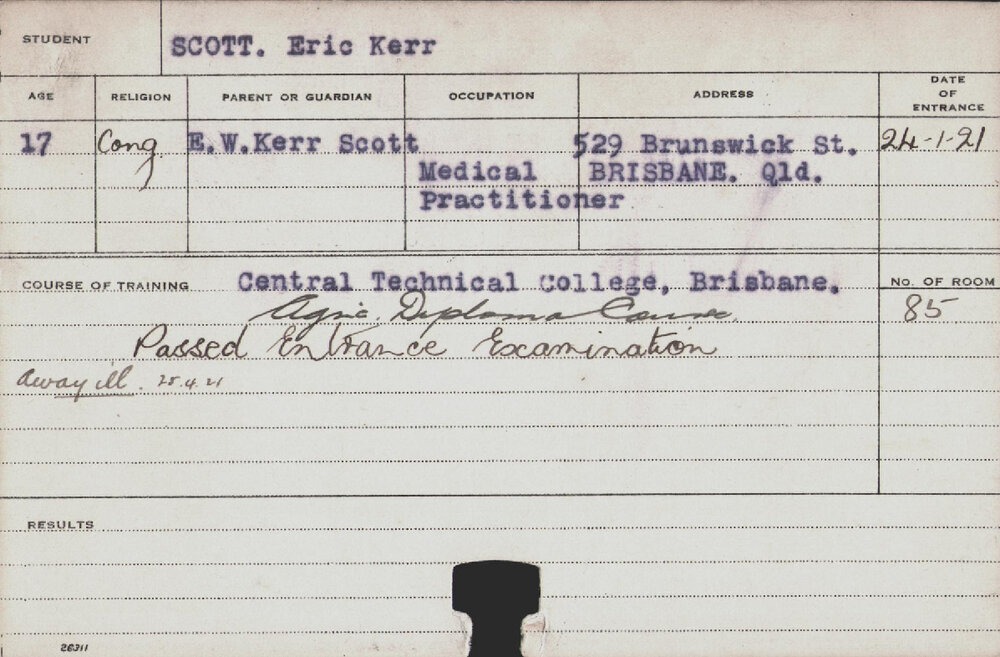 STUDENT SCOTT. Eric Kerr
AGE RELIGION PARENT OR GUARDIAN OCCUPATION ADDRESS DATE OF ENTRANCE
17 Cong E.W.Kerr Scott 529 Brunswick St. 24-1-21
Medical BRISBANE. Qld.
Practitioner
COURSE OF TRAINING Central Technical College, Brisbane. No. OF ROOM
Agric. Diploma Course 85
Passed Entrance Examination
Away ill. 25.4.21
RESULTS
26311